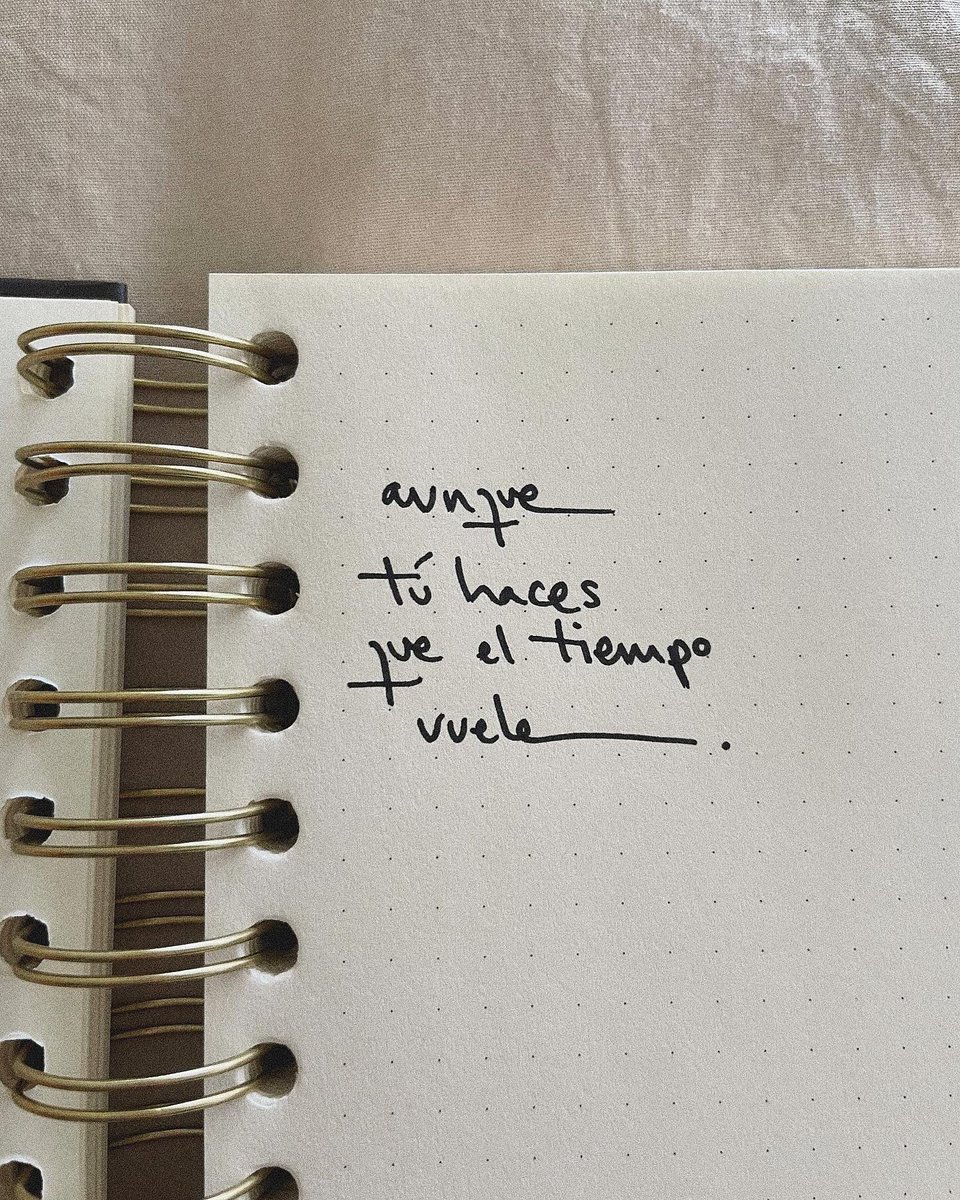 aunque
tú haces
que el tiempo
vuele.